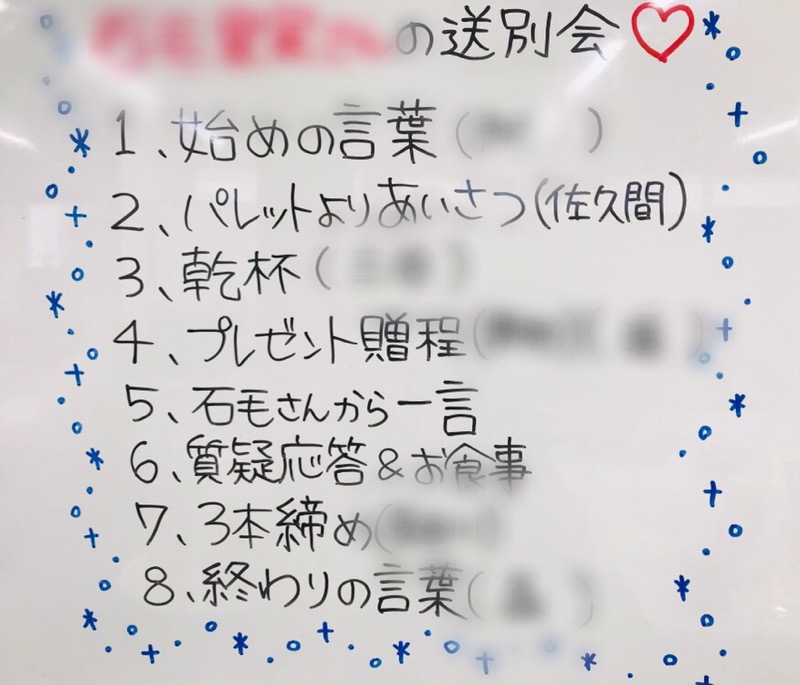 の送別会♡
1、始めの言葉( )
2、パレットよりあいさつ(佐久間)
3、乾杯( )
4、プレゼント贈程( )( )
5、石毛さんから一言
6、質疑応答&お食事
7、3本締め( )
8、終わりの言葉( )